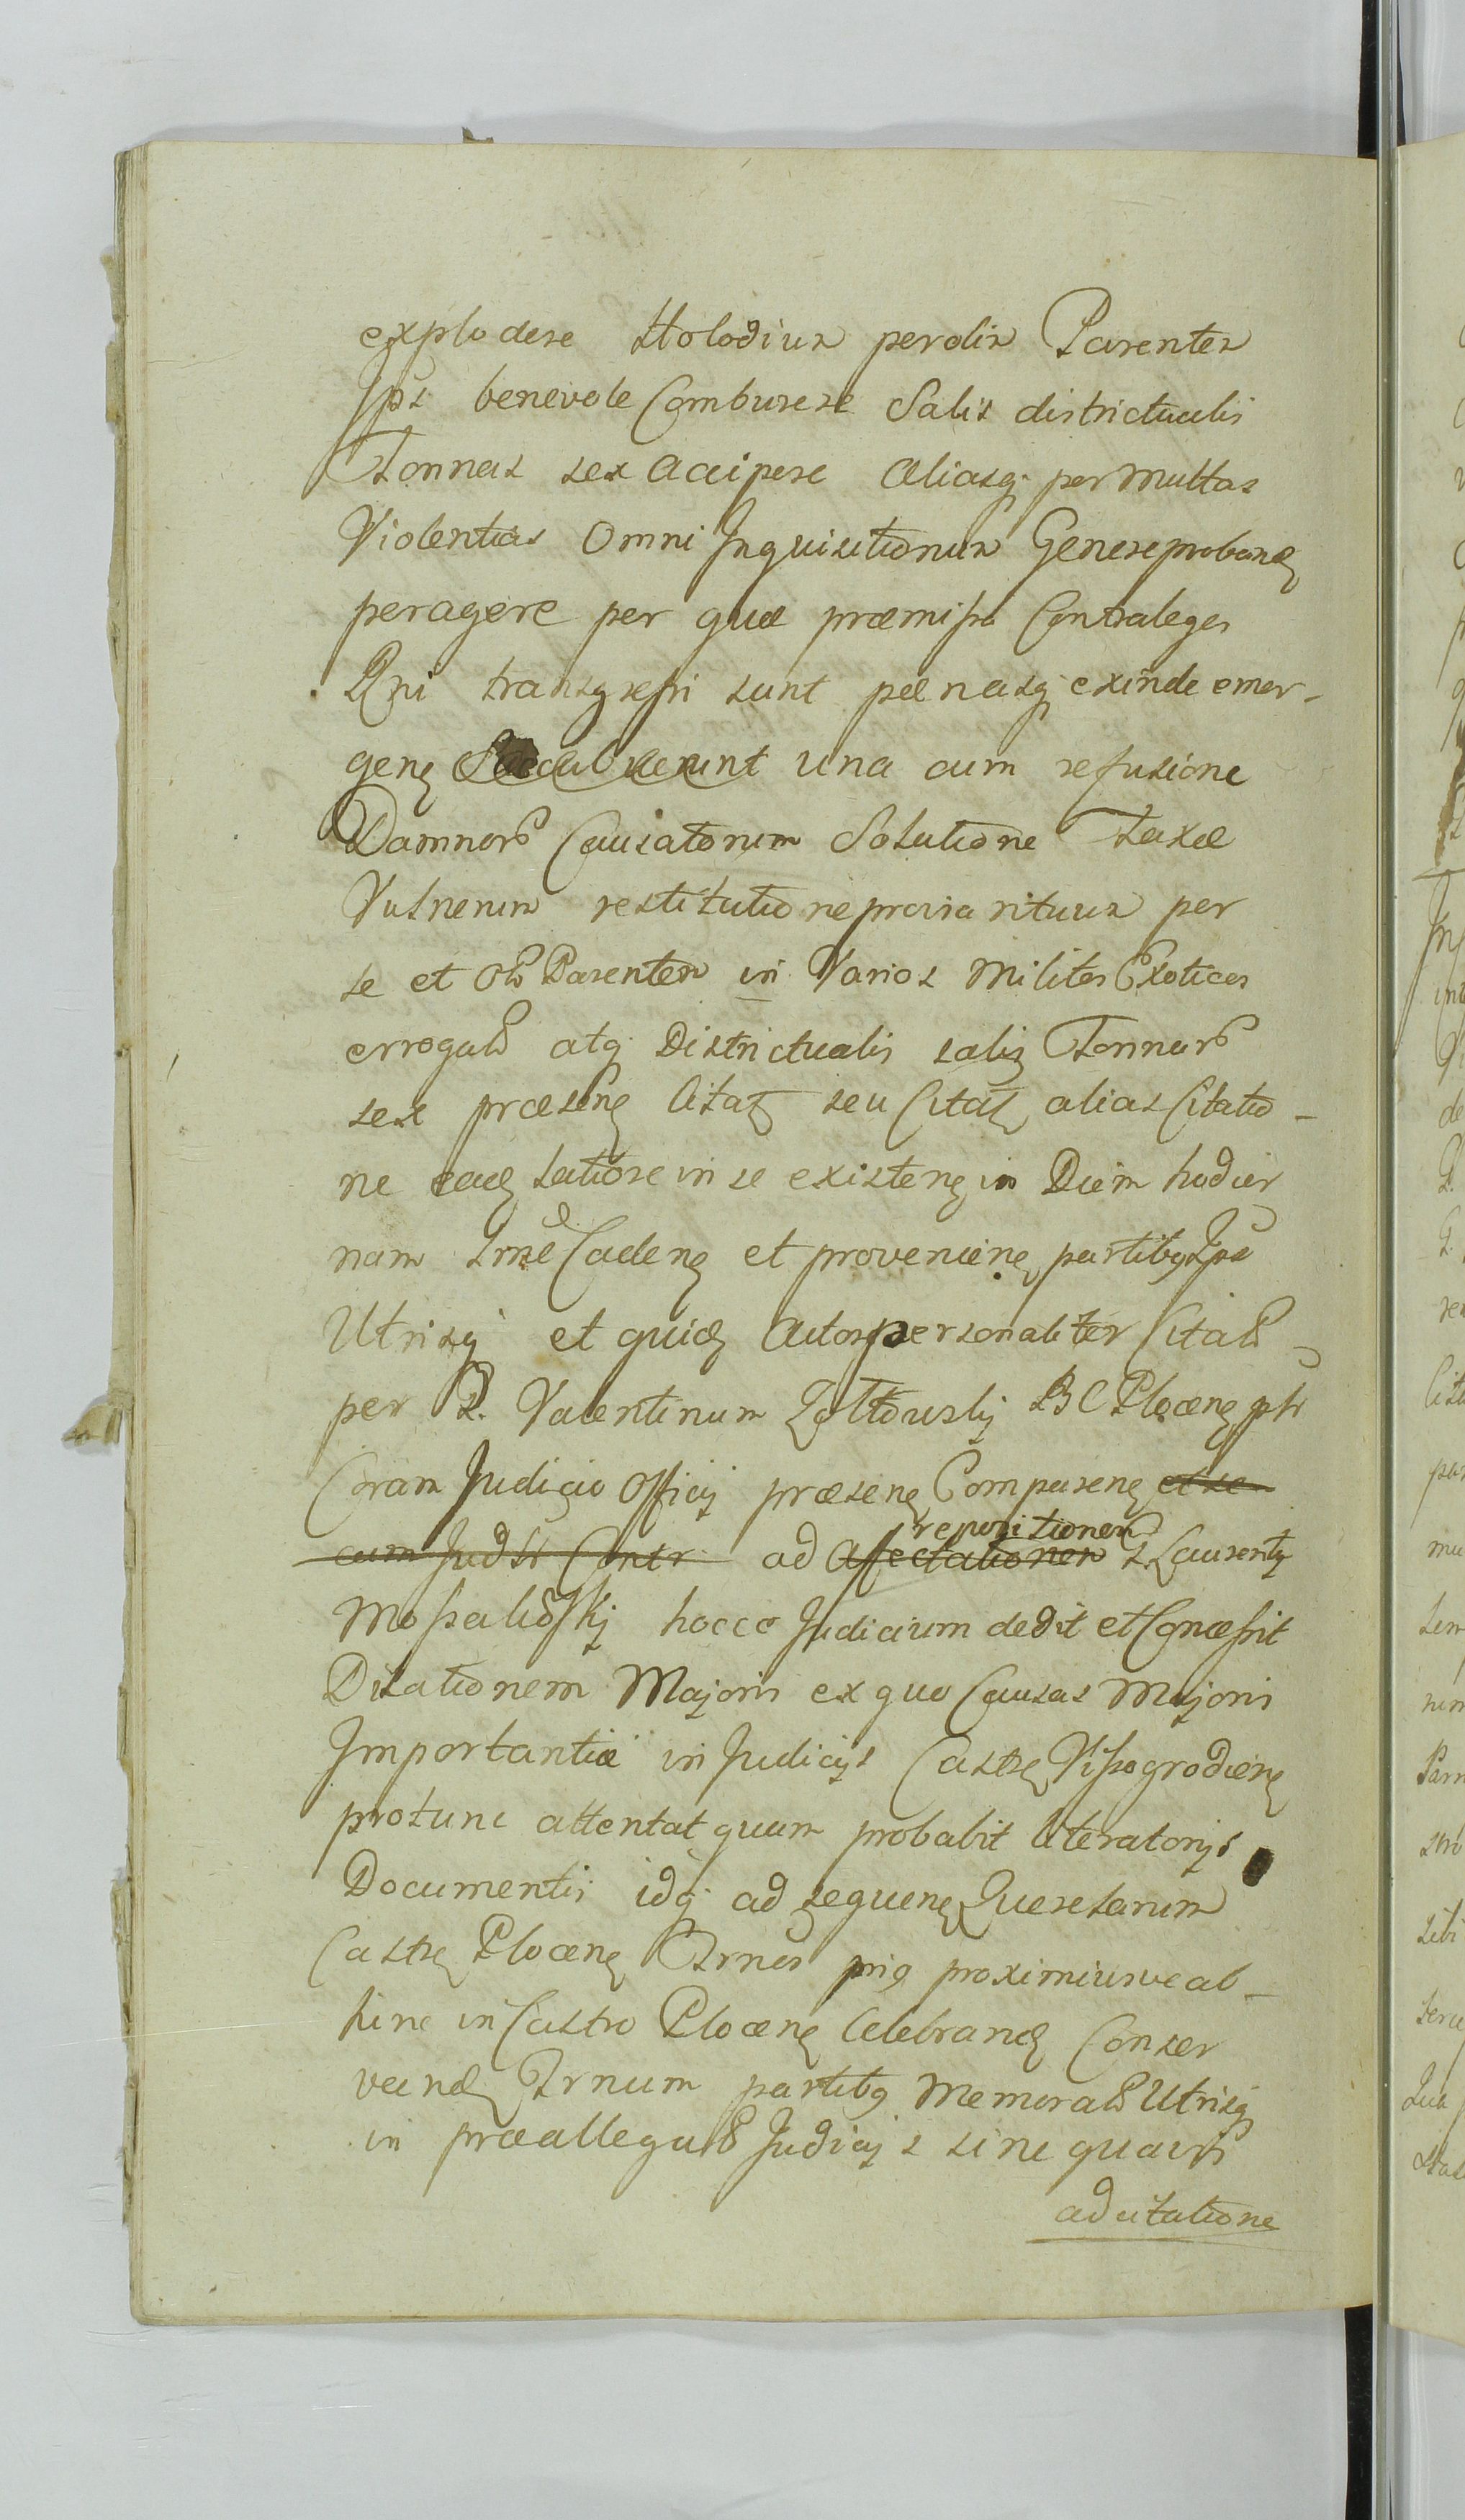 explodere Holodium perdix Parentem
Ips benevole Comburere Salis districtualis
Tonnas sex accipere aliasq; per multas
Violentias Omni Inquisitionum Genere proband
peragere per quæ præmissa Contra leges
Rni transgressi sunt pænasq; exinde emer-
gen una cum refusione
Damnor Causatorum Solutione Taxæ
Vulnerum restitutione per
se et Ob Parentem in Varios Milites Exoticos
errogat atq; Districtualis salis Tonnar
sex præsen Citat seu Citat alias Citatio-
ne ead latiore in se existen in Diem hodier
nam Trme Caden et provenien partibq Ips
Utrisq et quid Actor personaliter Citat
per P. Valentinum BC Plocen ptr
Coram Judicio Officij præsen Comparen et se
cum Contr ad Affectationem P. Laurentij
repositionem
hocce Judicium dedit et Concessit
Dilationem Majoris ex quo Causas Majoris
Importantiæ in Judicijs Castr Vissogrodien
protunc attentat quam probabit literatorijs
Documentis idq; ad sequen Querelarum
Castr Plocen Trnos priq proximiusve ab-
hinc in Castro Plocen Celebrand Conser
vand Trnum partibq Memorat Utrisq
in præallegat Judicijs sine quavis
adcitatione